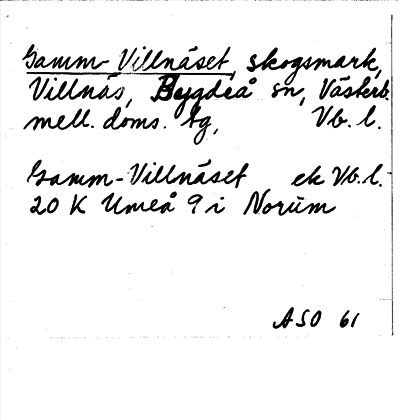 Gamm-Villnäset, skogsmark,
Villnäs, Bygdeå sn, Västerb.
mell. doms. tg, Vb. l.
Gamm-Villnäset ek Vb. l.
20 K Umeå 9 i Norum
ASO 61